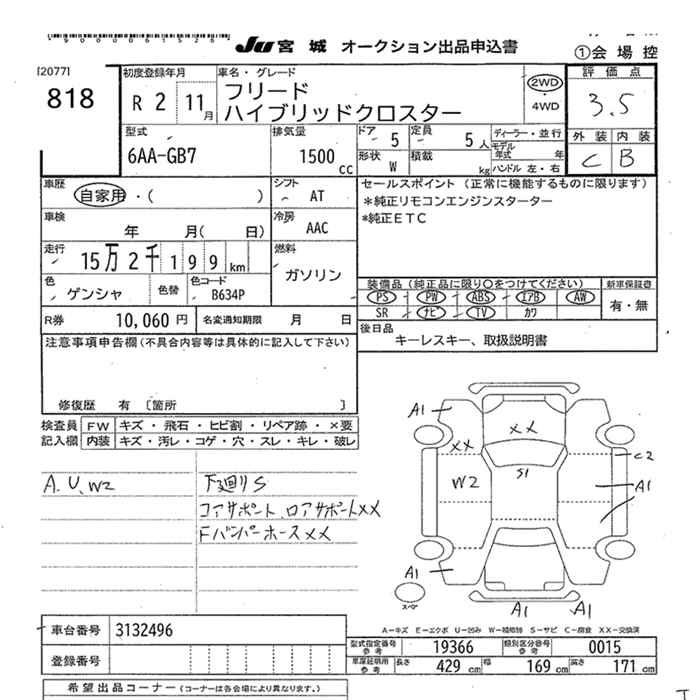 JU 宮城 オークション出品申込書
①会場控
[2077]
818
初度登録年月
R 2 11月
車名・グレード
フリード
ハイブリッドクロスター
2WD
・4WD
評価点
3.5
外装 内装
C B
型式
6AA-GB7
排気量
1500 cc
ドア 5
定員 5人
ディーラー・並行
モデル年式 年
形状 W
積載 kg
ハンドル 左・右
車歴
自家用・( )
シフト
AT
セールスポイント (正常に機能するものに限ります)
*純正リモコンエンジンスターター
*純正ETC
車検
年 月( 日)
冷房
AAC
走行
15万2千199km
燃料
ガソリン
色
ゲンシャ
色替
色コード
B634P
装備品(純正品に限り○をつけてください)
新車保証書
PS PW ABS エアB AW
SR ナビ TV カワ
有・無
R券 10,060円
名変通知期限 月 日
後日品
キーレスキー、取扱説明書
注意事項申告欄(不具合内容等は具体的に記入して下さい)
修復歴 有 [箇所 ]
検査員記入欄
FW キズ・飛石・ヒビ割・リペア跡・×要
内装 キズ・汚レ・コゲ・穴・スレ・キレ・破レ
A.U.W2
下廻りS
コアサポート、ロアサポートXX
FバンパーホースXX
A1
XX
XX
W2
S1
C2
A1
A1
A1
A1
スペア
A－キズ E－エクボ U－凹み W－補修跡 S－サビ C－腐食 XX－交換済
車台番号 3132496
登録番号
型式指定番号参考 19366
類別区分番号参考 0015
車庫証明用参考 長さ 429 cm 幅 169 cm 高さ 171 cm
希望出品コーナー(コーナーは各会場により異なります。)